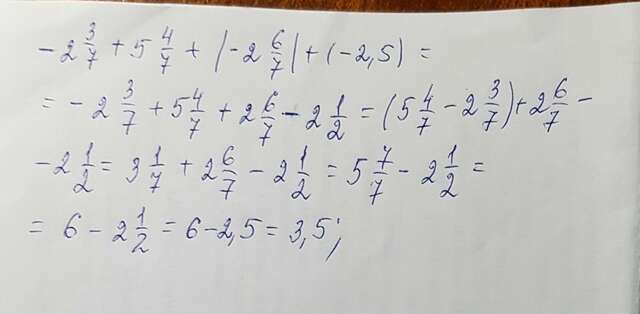 -2 3/7 + 5 4/7 + |-2 6/7| + (-2,5) =
= -2 3/7 + 5 4/7 + 2 6/7 - 2 1/2 = (5 4/7 - 2 3/7) + 2 6/7 -
-2 1/2 = 3 1/7 + 2 6/7 - 2 1/2 = 5 7/7 - 2 1/2 =
= 6 - 2 1/2 = 6 - 2,5 = 3,5;